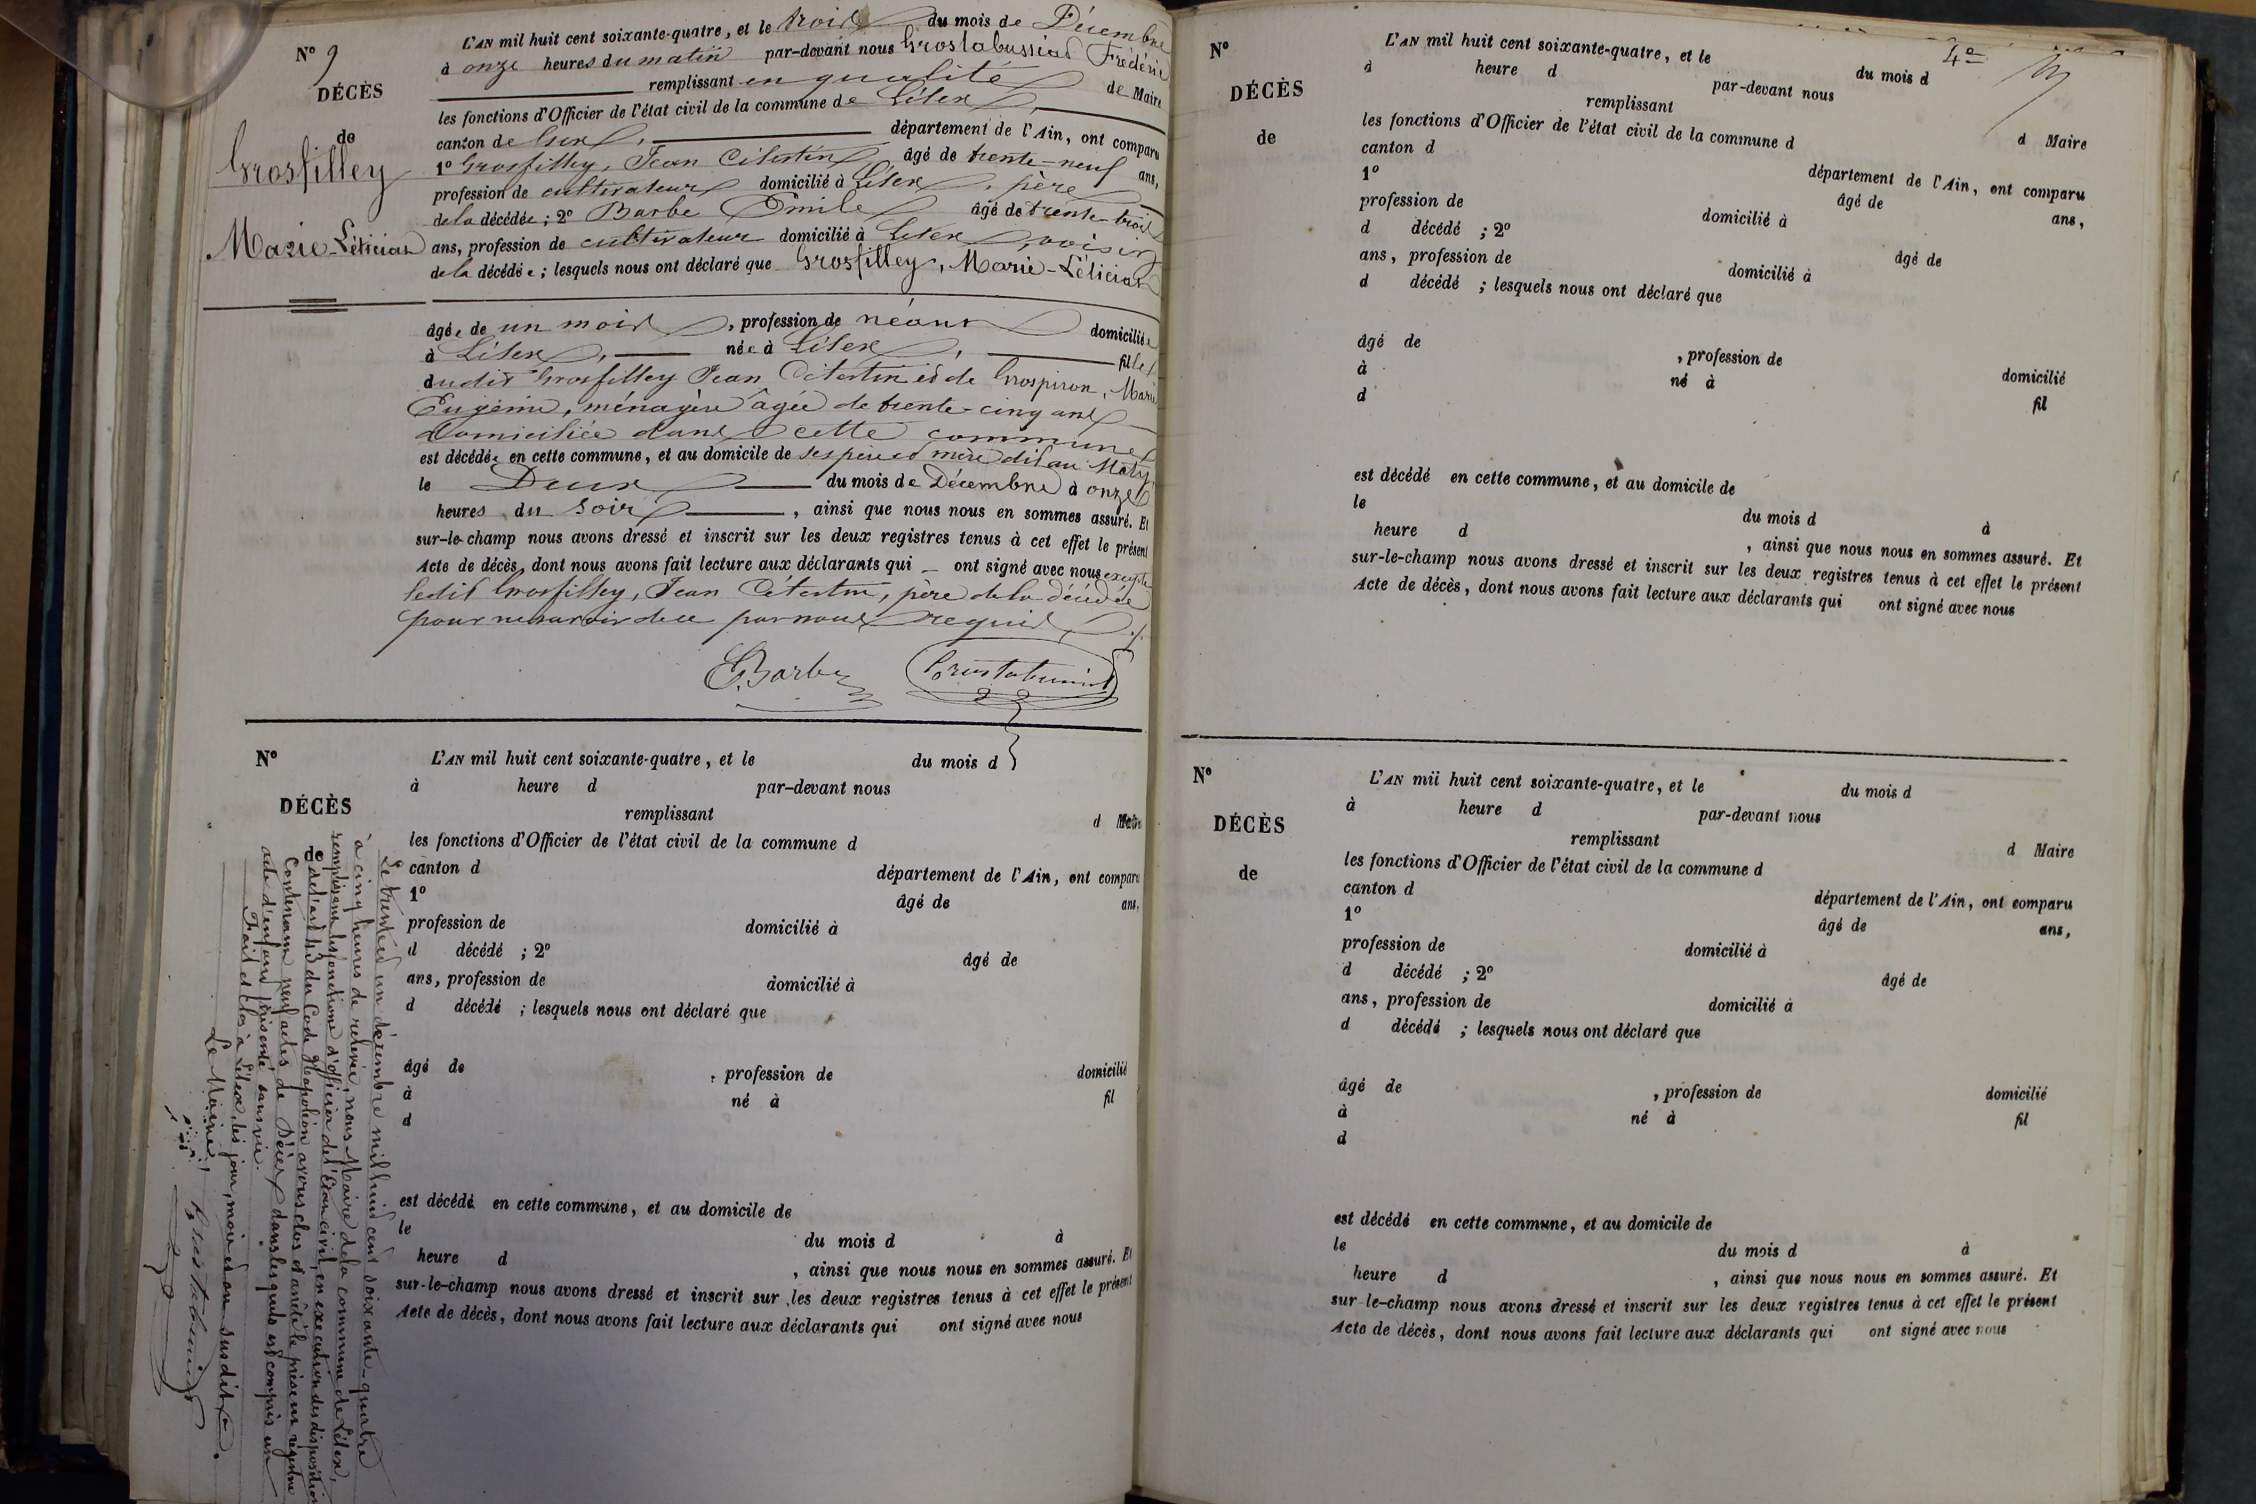 N° 9
DÉCÈS
de
Grosfilley
Marie-Léticia
L'AN mil huit cent soixante-quatre, et le trois du mois de Décembre
à onze heures du matin par-devant nous Grostabussiat Frédéric
remplissant en qualité de Maire
les fonctions d'Officier de l'état civil de la commune de Lélex,
canton de Gex, département de l'Ain, ont comparu
1° Grosfilley, Jean Célestin âgé de trente-neuf ans,
profession de cultivateur domicilié à Lélex, père
de la décédée ; 2° Barbe Emile âgé de trente-trois
ans, profession de cultivateur domicilié à Lélex, voisin
de la décédée ; lesquels nous ont déclaré que Grosfilley, Marie-Léticia
âgée de un mois, profession de néant domiciliée
à Lélex, née à Lélex, fille
dudit Grosfilley Jean Célestin et de Grospiron, Marie
Eugénie, ménagère âgée de trente-cinq ans
domiciliée dans cette commune
est décédée en cette commune, et au domicile de ses père et mère dit au
le Deux du mois de Décembre à onze
heures du soir, ainsi que nous nous en sommes assuré. Et
sur-le-champ nous avons dressé et inscrit sur les deux registres tenus à cet effet le présent
Acte de décès, dont nous avons fait lecture aux déclarants qui ont signé avec nous excepté
ledit Grosfilley, Jean Célestin, père de la décédée
pour ne savoir de ce par nous requis
E. Barbe Grostabussiat
N°
DÉCÈS
de
L'AN mil huit cent soixante-quatre, et le du mois d
à heure d par-devant nous
remplissant d Maire
les fonctions d'Officier de l'état civil de la commune d
canton d département de l'Ain, ont comparu
1° âgé de ans,
profession de domicilié à
d décédé ; 2° âgé de
ans, profession de domicilié à
d décédé ; lesquels nous ont déclaré que
âgé de , profession de domicilié
à né à fil
d
est décédé en cette commune, et au domicile de
le du mois d à
heure d , ainsi que nous nous en sommes assuré. Et
sur-le-champ nous avons dressé et inscrit sur les deux registres tenus à cet effet le présent
Acte de décès, dont nous avons fait lecture aux déclarants qui ont signé avec nous
Le trente et un décembre mil huit cent soixante-quatre
à cinq heures de relevée, nous Maire de la commune de Lélex,
remplissant les fonctions d'officier de l'Etat civil, en exécution des dispositions
de l'art. 43 du Code Napoléon avons clos et arrêté le présent registre
contenant neuf actes de Décès dans lesquels est compris un
acte d'enfant présenté sans vie.
Fait et clos à Lélex, les jour, mois et an susdits.
Le Maire,
Grostabussiat
4e
N°
DÉCÈS
de
L'AN mil huit cent soixante-quatre, et le du mois d
à heure d par-devant nous
remplissant d Maire
les fonctions d'Officier de l'état civil de la commune d
canton d département de l'Ain, ont comparu
1° âgé de ans,
profession de domicilié à
d décédé ; 2° âgé de
ans, profession de domicilié à
d décédé ; lesquels nous ont déclaré que
âgé de , profession de domicilié
à né à fil
d
est décédé en cette commune, et au domicile de
le du mois d à
heure d , ainsi que nous nous en sommes assuré. Et
sur-le-champ nous avons dressé et inscrit sur les deux registres tenus à cet effet le présent
Acte de décès, dont nous avons fait lecture aux déclarants qui ont signé avec nous
N°
DÉCÈS
de
L'AN mil huit cent soixante-quatre, et le du mois d
à heure d par-devant nous
remplissant d Maire
les fonctions d'Officier de l'état civil de la commune d
canton d département de l'Ain, ont comparu
1° âgé de ans,
profession de domicilié à
d décédé ; 2° âgé de
ans, profession de domicilié à
d décédé ; lesquels nous ont déclaré que
âgé de , profession de domicilié
à né à fil
d
est décédé en cette commune, et au domicile de
le du mois d à
heure d , ainsi que nous nous en sommes assuré. Et
sur-le-champ nous avons dressé et inscrit sur les deux registres tenus à cet effet le présent
Acte de décès, dont nous avons fait lecture aux déclarants qui ont signé avec nous